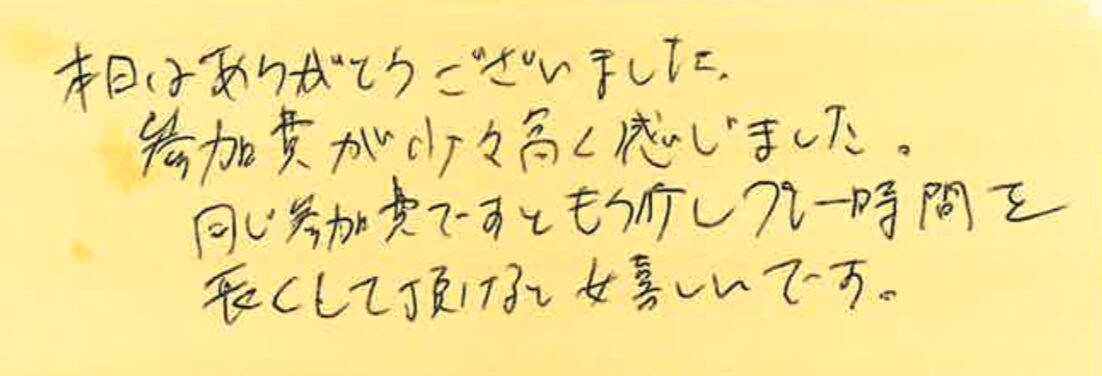 本日はありがとうございました。
参加費が少々高く感じました。
同じ参加費ですともう少しプレー時間を
長くして頂けると嬉しいです。